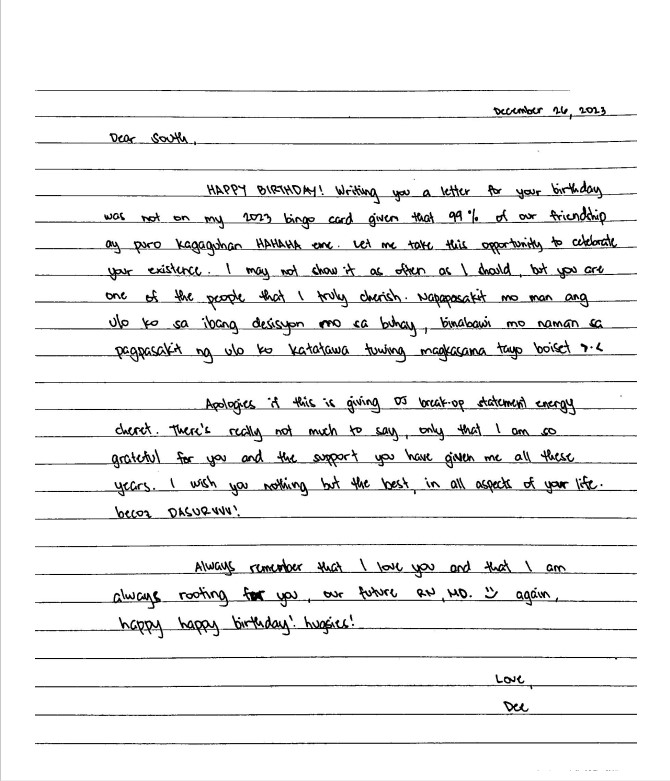 December 26, 2023
Dear South,
HAPPY BIRTHDAY! Writing you a letter for your birthday
was not on my 2023 bingo card given that 99% of our friendship
ay puro kagaguhan HAHAHA eme. Let me take this opportunity to celebrate
your existence. I may not show it as often as I should, but you are
one of the people that I truly cherish. Napapasakit mo man ang
ulo ko sa ibang desisyon mo sa buhay, binabawi mo naman sa
pagpasakit ng ulo ko katatawa tuwing magkasama tayo boiset >.<
Apologies if this is giving DJ break-up statement energy
cheret. There's really not much to say, only that I am so
grateful for you and the support you have given me all these
years. I wish you nothing but the best, in all aspects of your life.
becoz DASURVVV!
Always remember that I love you and that I am
always rooting for you, our future RN, MD. again,
happy happy birthday! hugsies!
Love,
Dee